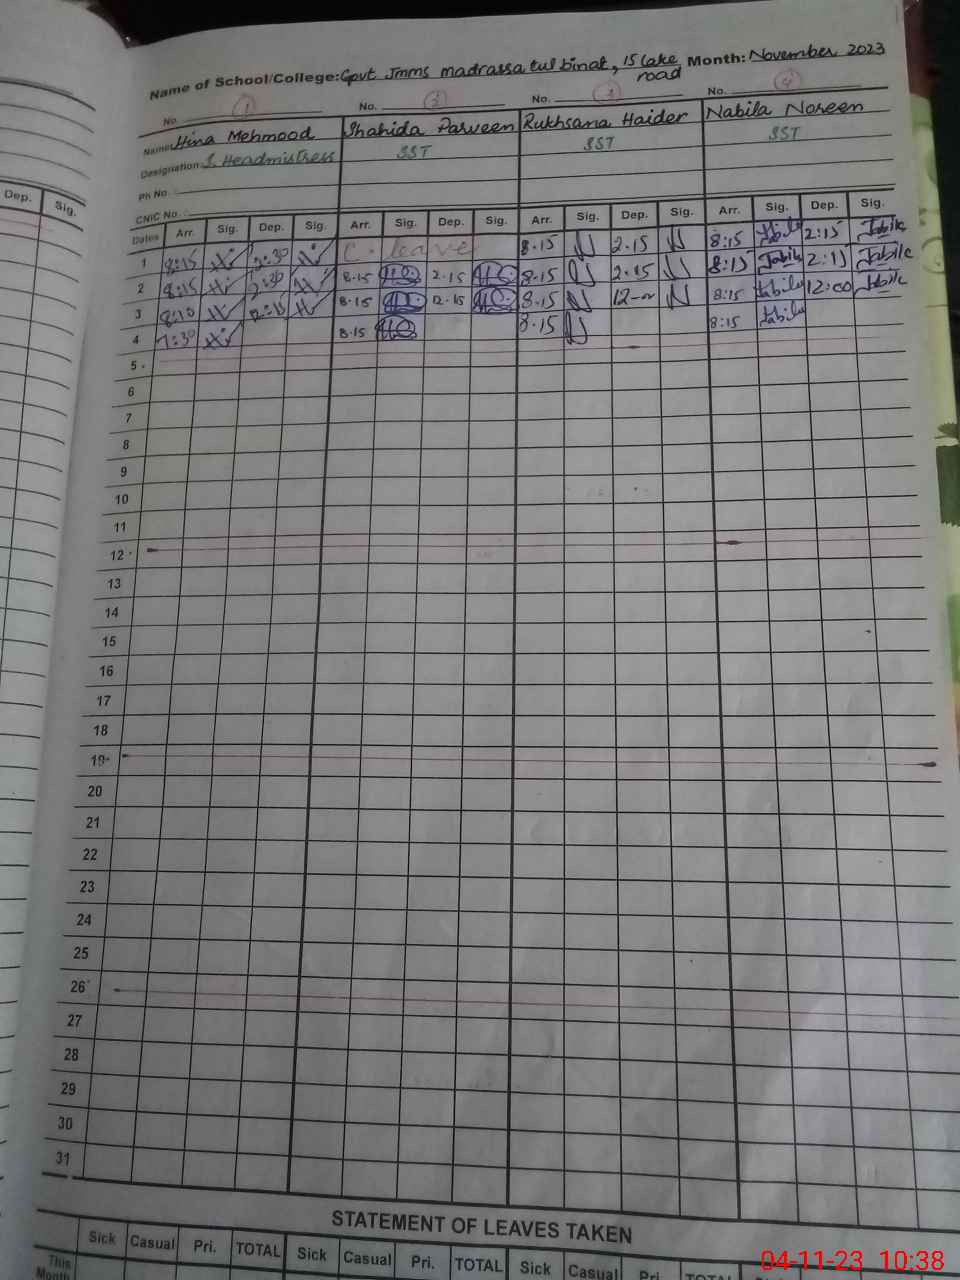 Name of School/College: Govt Jmms madrassa tul binat, 15 lake road Month: November 2023
No. 1 No. 2 No. 3 No. 4
Name: Hina Mehmood Shahida Parveen Rukhsana Haider Nabila Noreen
Designation: S. Headmistress SST SST SST
Ph No.
CNIC No.
Dates Arr. Sig. Dep. Sig. Arr. Sig. Dep. Sig. Arr. Sig. Dep. Sig. Arr. Sig. Dep. Sig.
1 8:15 2:30 C. leave 8.15 2.15 8:15 Nabila 2:15 Nabila
2 8:15 2:30 8.15 2.15 8.15 2.15 8:15 Nabila 2:15 Nabila
3 8:10 12:15 8.15 12.15 8.15 12-00 8:15 Nabila 12:00 Nabila
4 7:30 8.15 8.15 8:15 Nabila
5
6
7
8
9
10
11
12
13
14
15
16
17
18
19
20
21
22
23
24
25
26
27
28
29
30
31
STATEMENT OF LEAVES TAKEN
Sick Casual Pri. TOTAL Sick Casual Pri. TOTAL Sick Casual Pri. TOTAL
This Month
Dep. Sig.
04-11-23 10:38